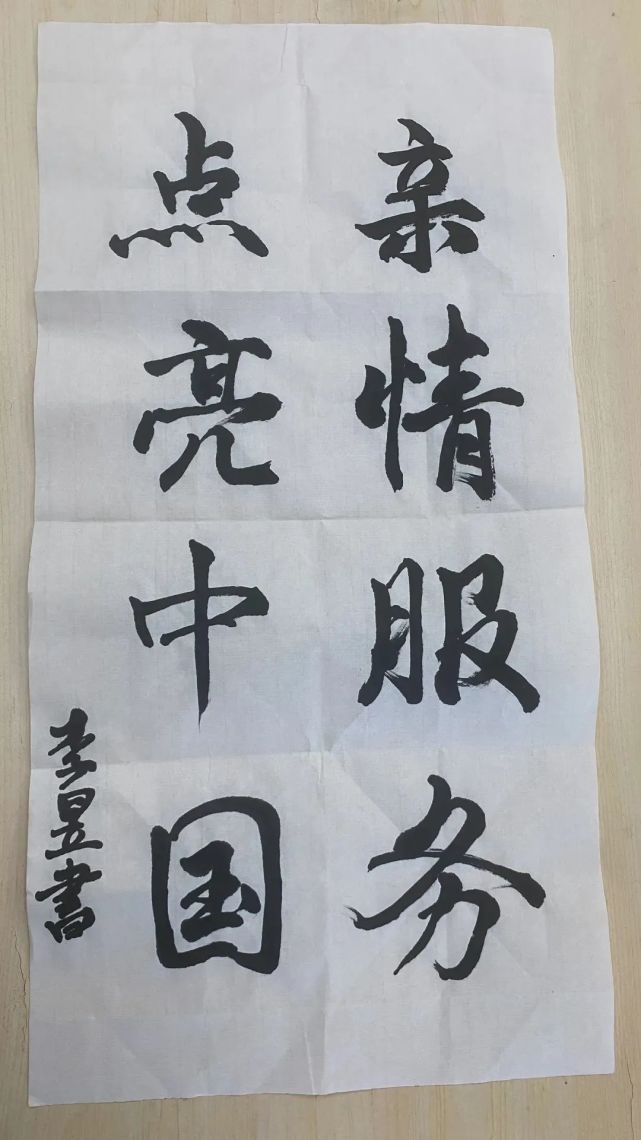 亲情服务
点亮中国
李昱書